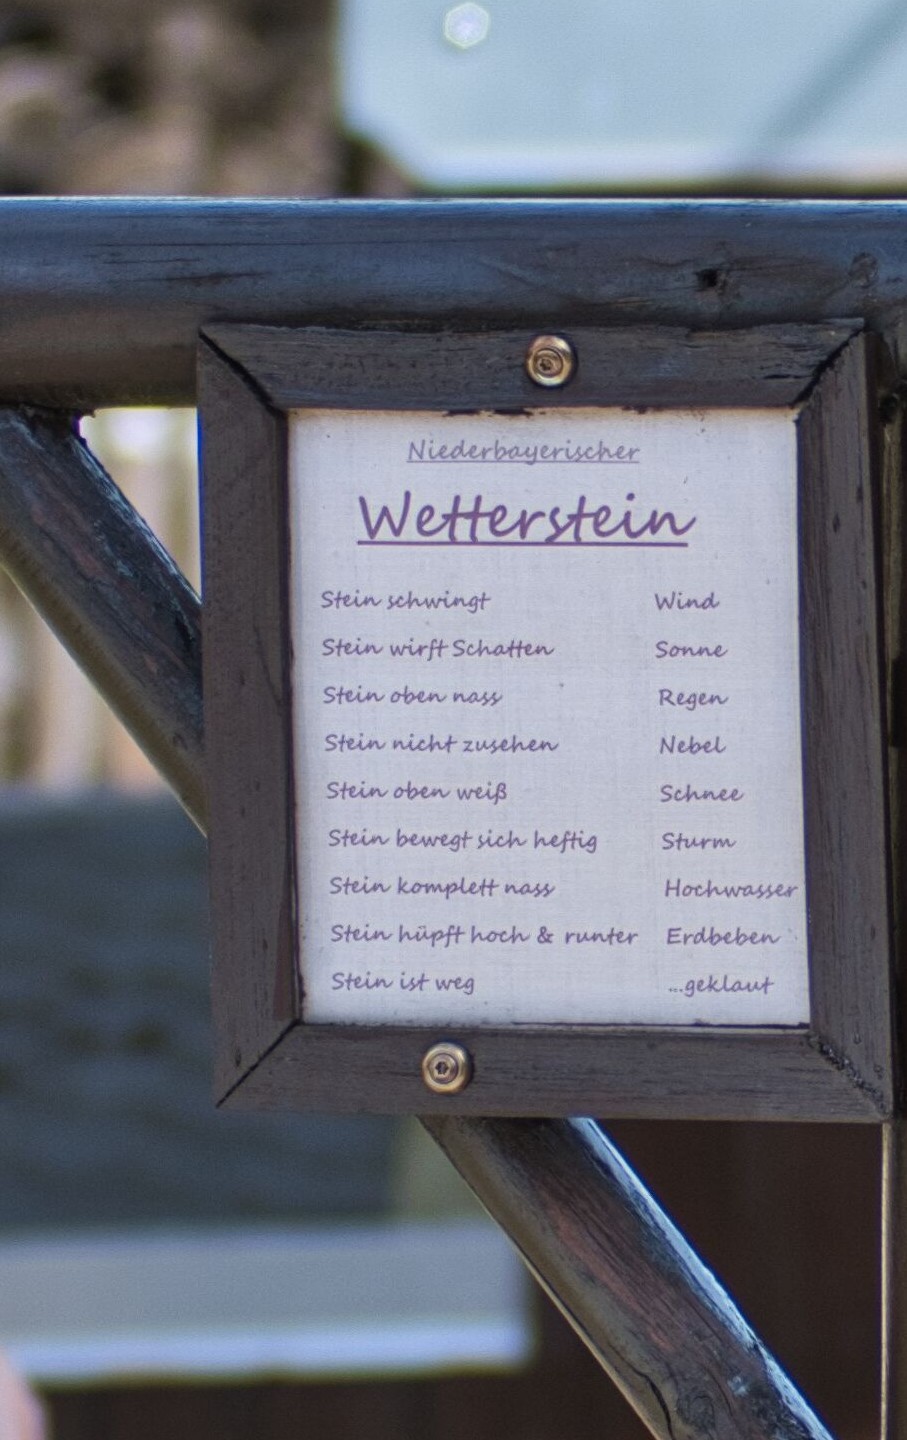 Niederbayerischer
Wetterstein
Stein schwingt Wind
Stein wirft Schatten Sonne
Stein oben nass Regen
Stein nicht zusehen Nebel
Stein oben weiß Schnee
Stein bewegt sich heftig Sturm
Stein komplett nass Hochwasser
Stein hüpft hoch & runter Erdbeben
Stein ist weg ...geklaut